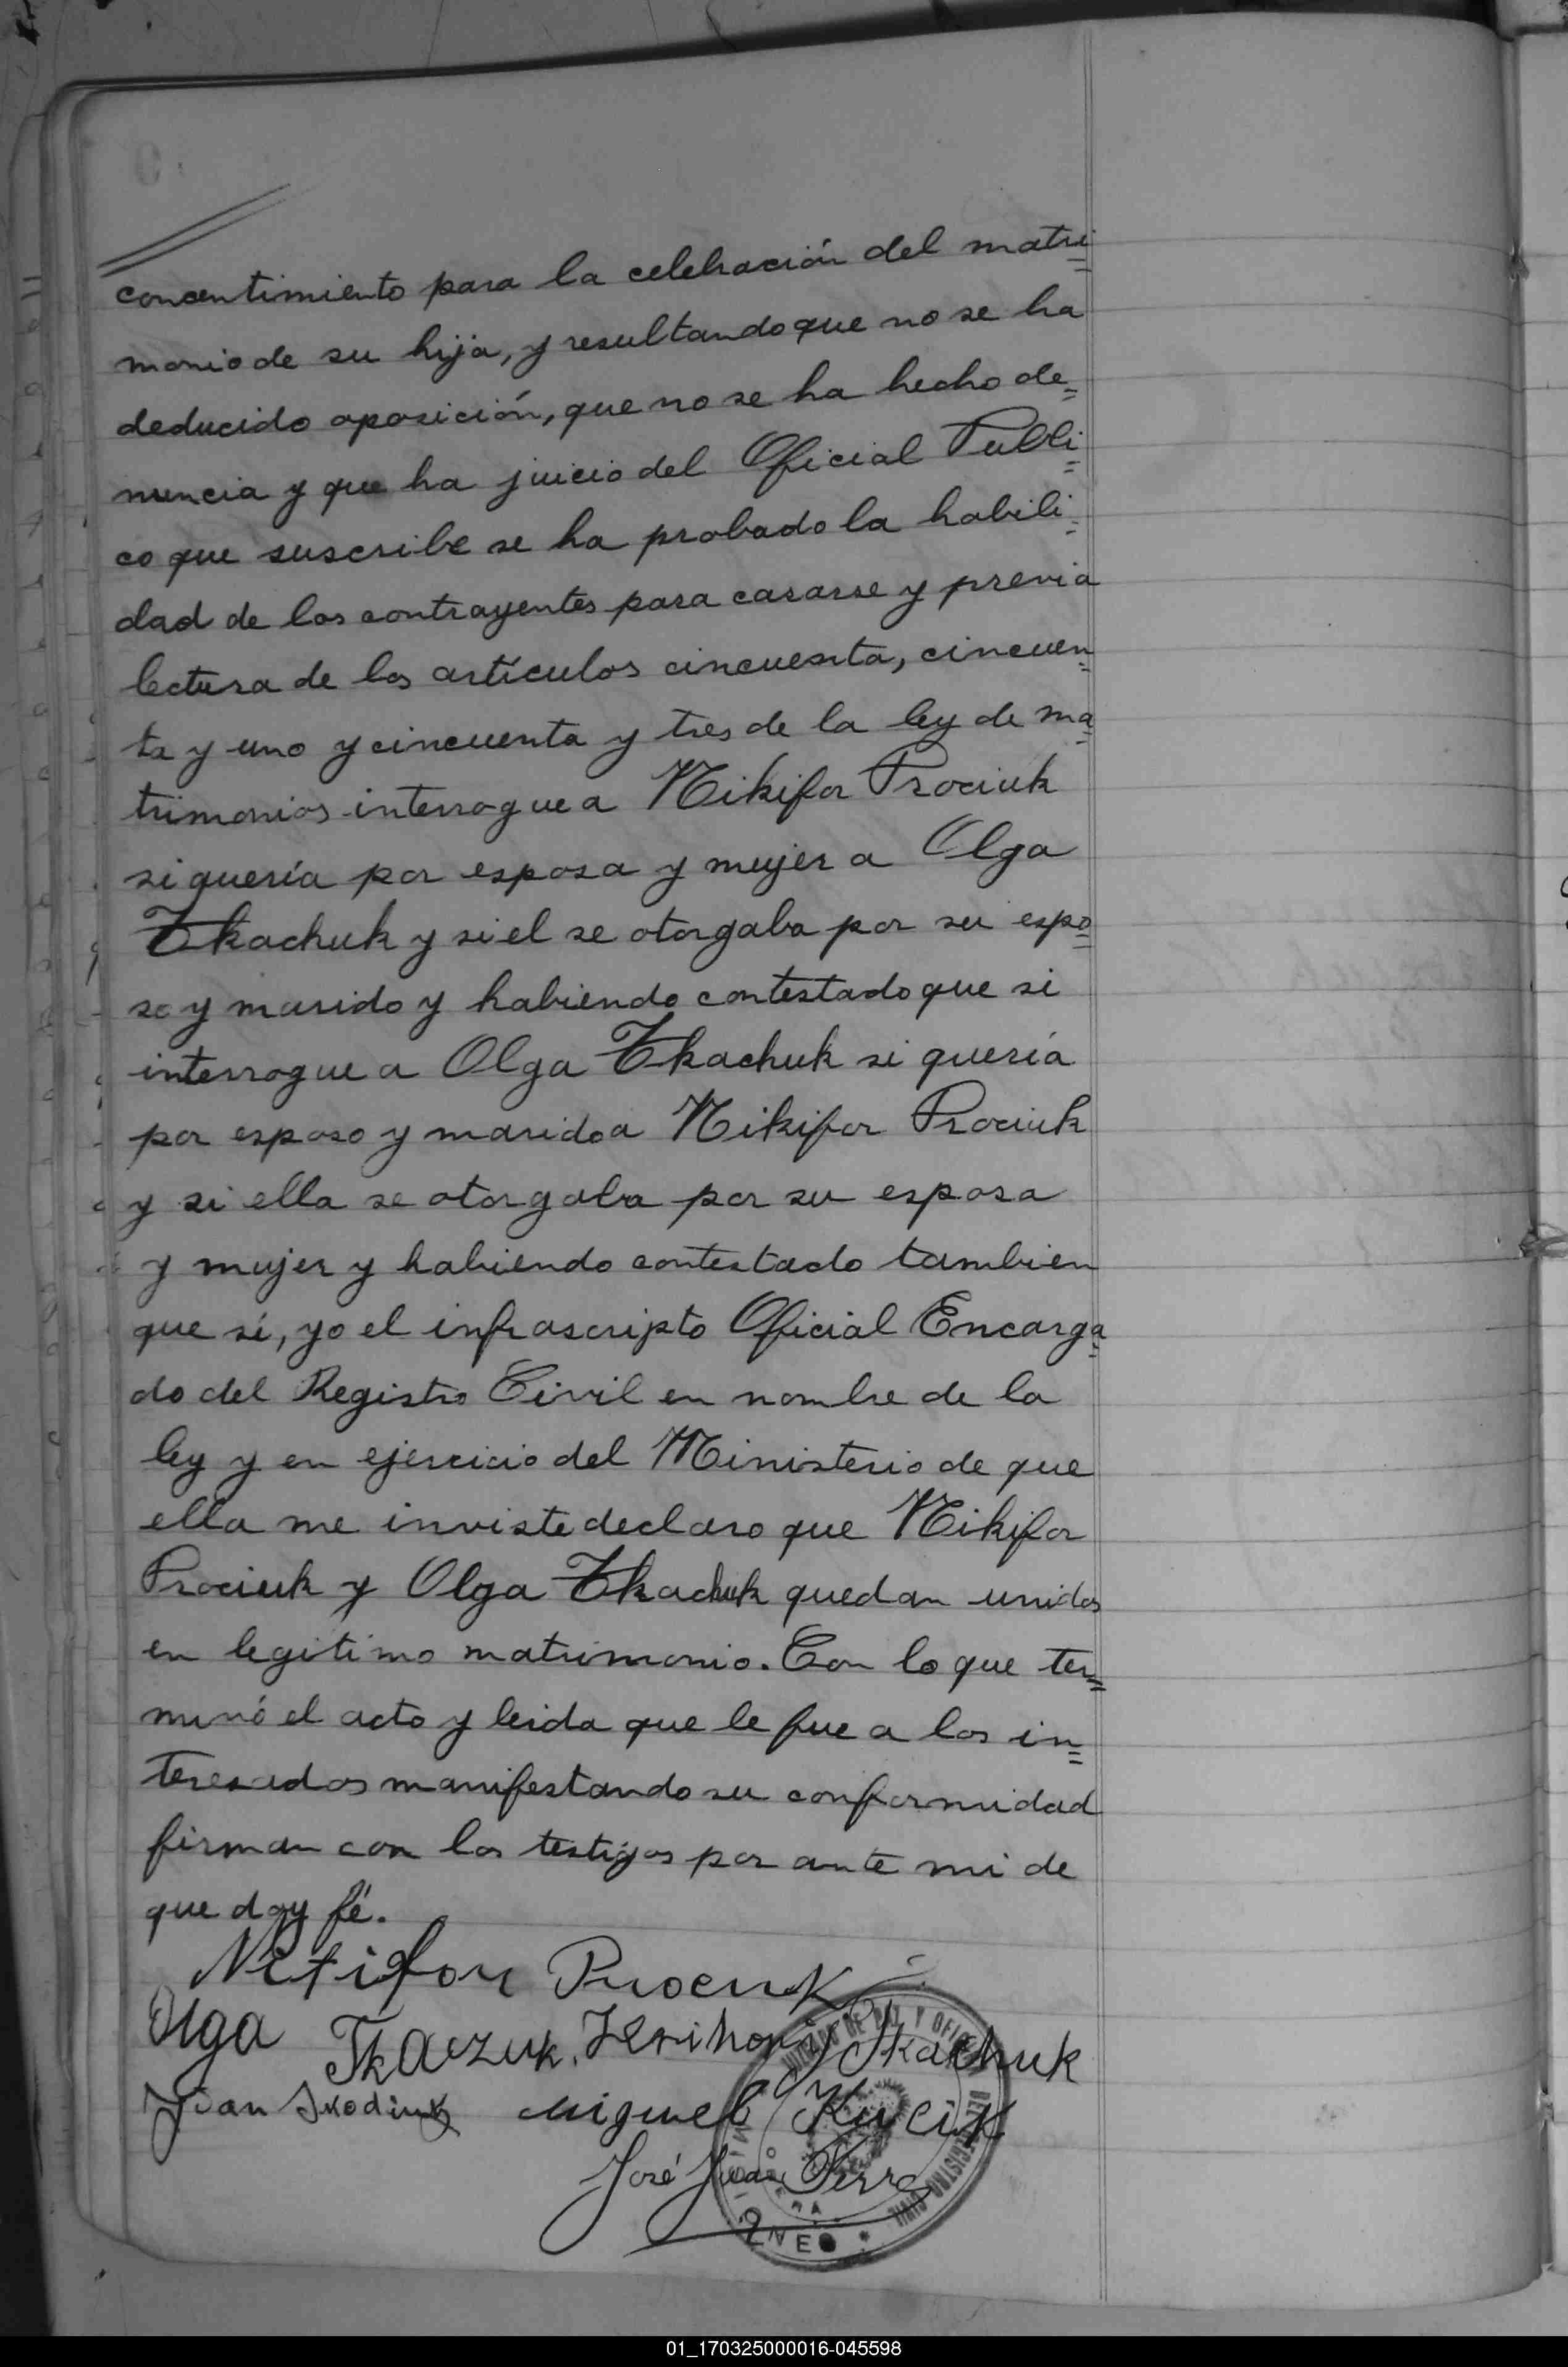 concentimiento para la celebración del matri=
monio de su hija, y resultando que no se ha
deducido oposición, que no se ha hecho de=
nuncia y que ha juicio del Oficial Publi=
co que suscribe se ha probado la habili=
dad de los contrayentes para casarse y previa
lectura de los artículos cincuenta, cincuen=
ta y uno y cincuenta y tres de la ley de ma=
trimonios interrogue a Nikifor Prociuk
si quería por esposa y mujer a Olga
Tkachuk y si el se otorgaba por su espo=
so y marido y habiendo contestado que si
interrogue a Olga Tkachuk si quería
por esposo y marido a Nikifor Prociuk
y si ella se otorgaba por su esposa
y mujer y habiendo contestado tambien
que sí, yo el infrascripto Oficial Encarga=
do del Registro Civil en nombre de la
ley y en ejercicio del Ministerio de que
ella me inviste declaro que Nikifor
Prociuk y Olga Tkachuk quedan unidos
en legitimo matrimonio. Con lo que ter=
minó el acto y leida que le fue a los in=
teresados manifestando su conformidad
firman con los testigos por ante mi de
que doy fé.
Prociuk
Olga Tkaczuk. Tkachuk
Juan Miguel Kucik
José Juan
JUZGADO DE PAZ Y OFICINA DEL REGISTRO CIVIL
01_170325000016-045598